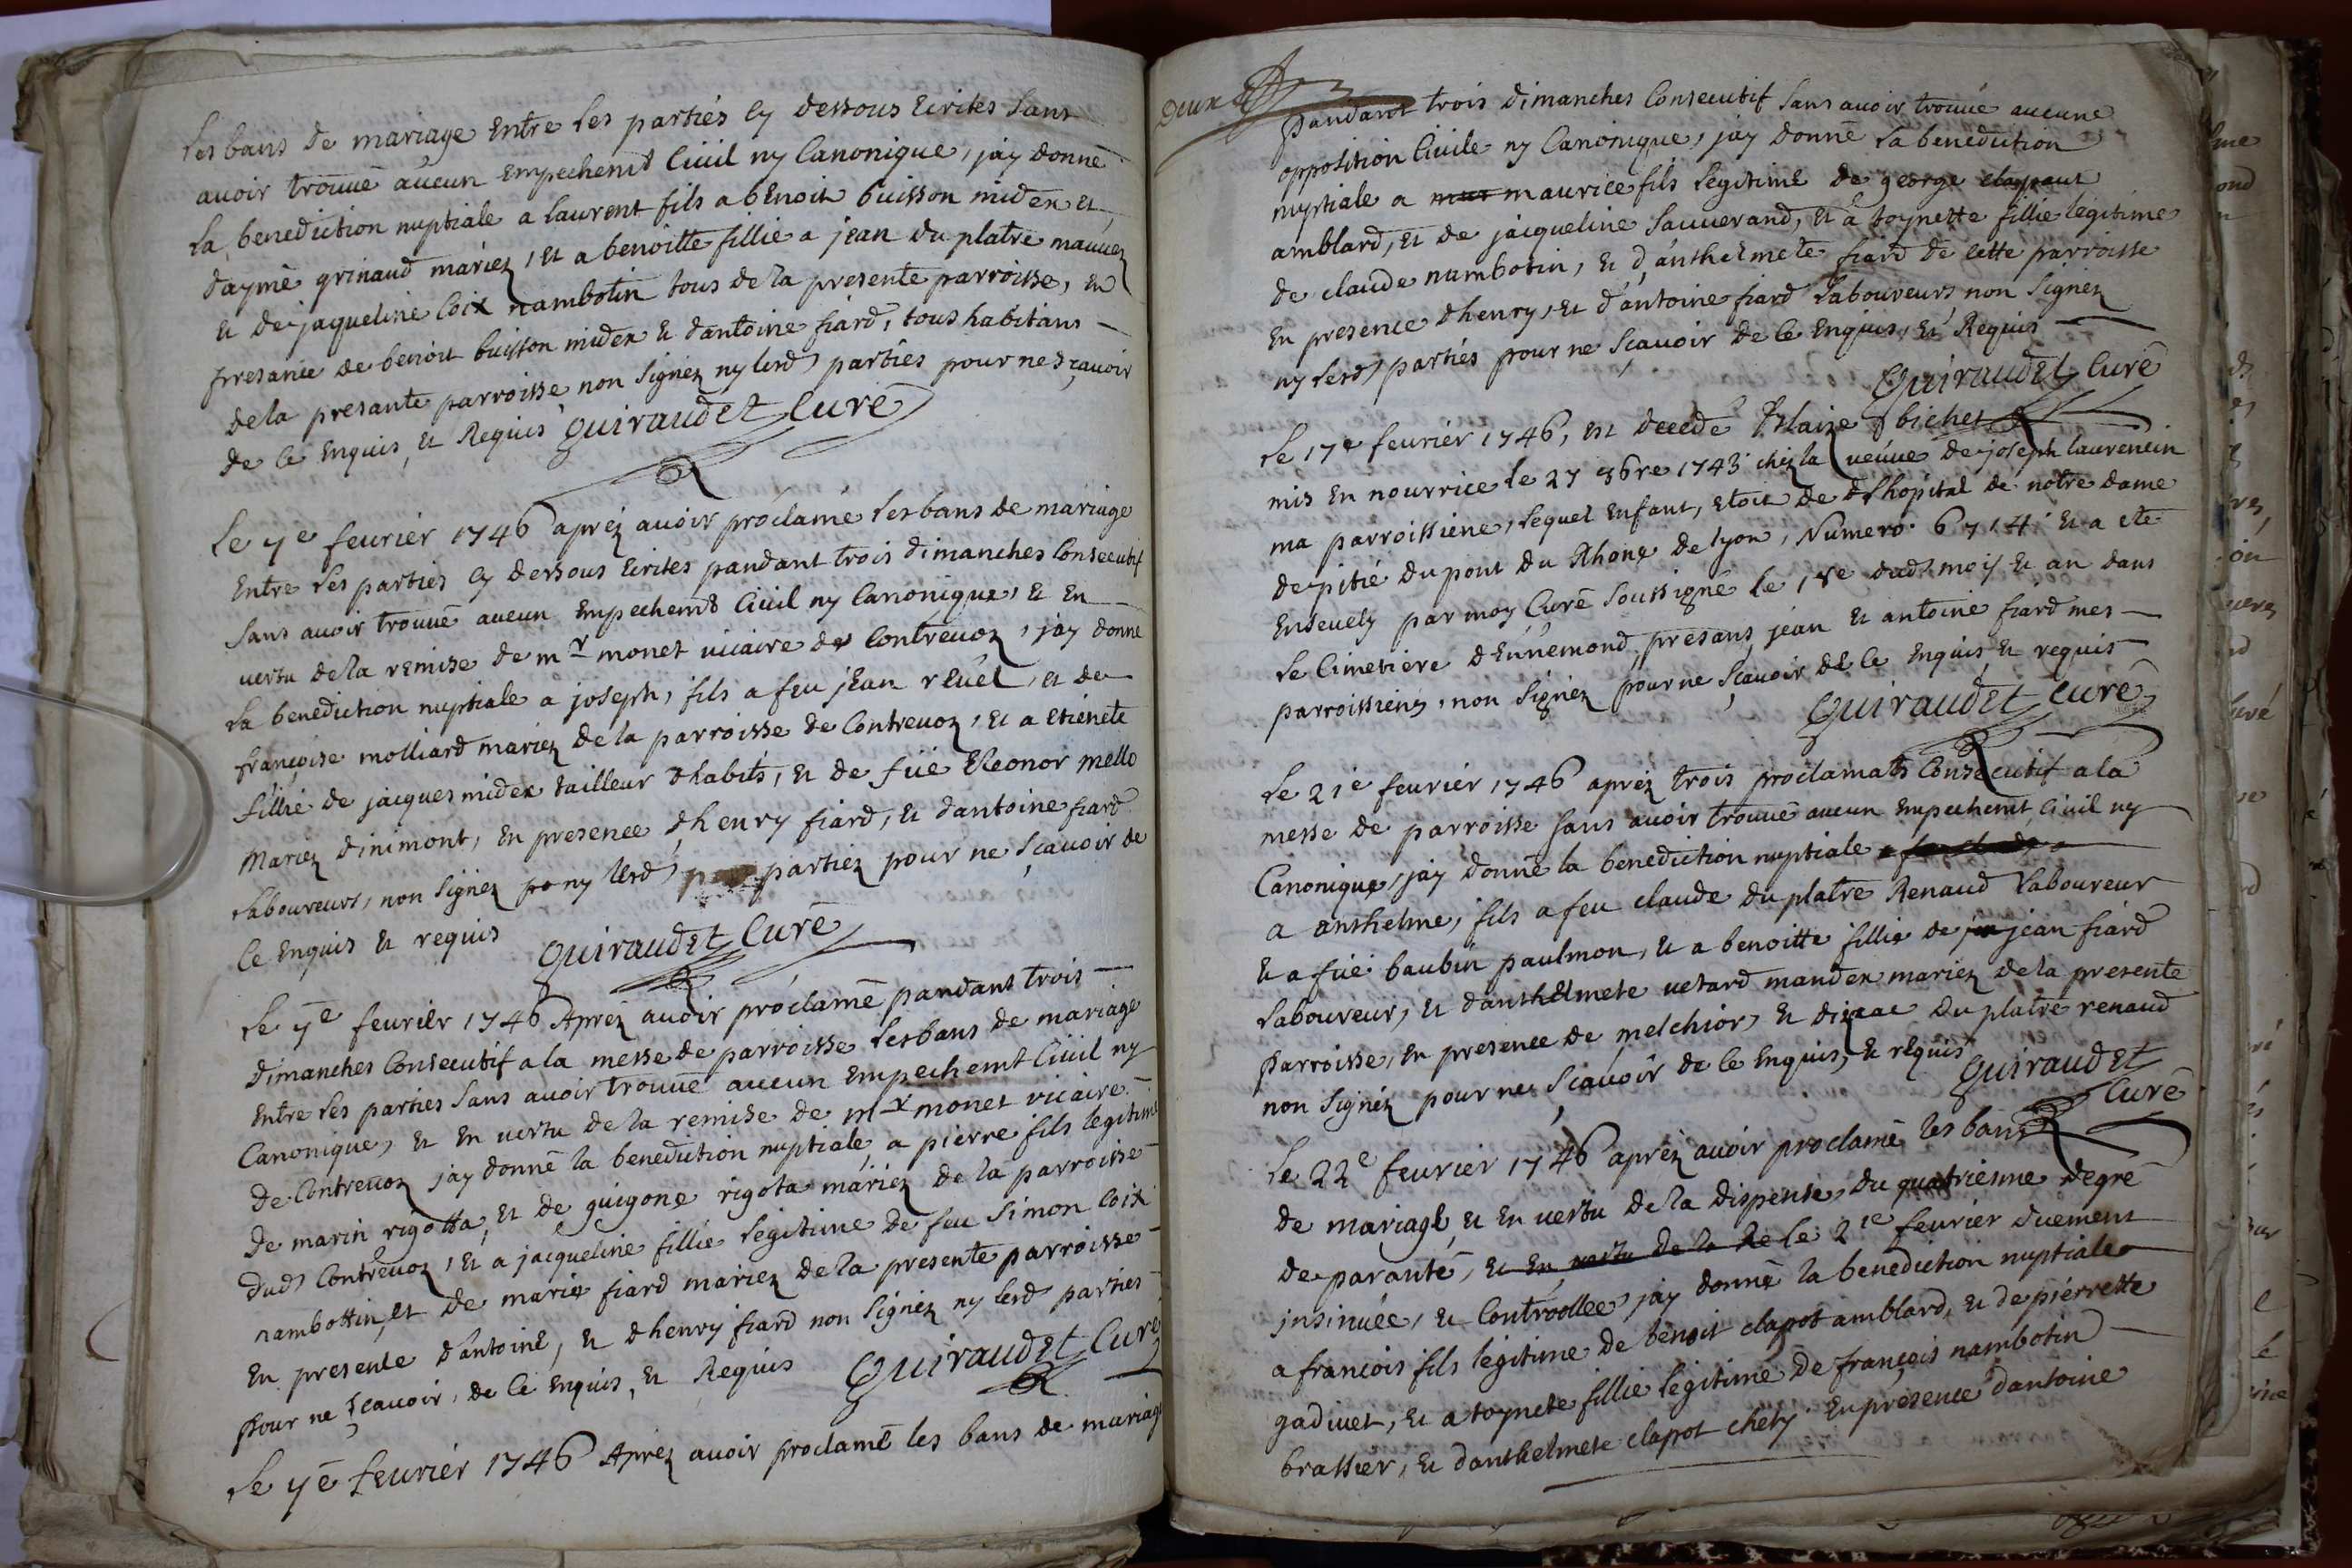 les bans de mariage Entre les partiés Cy dessous Ecrites sans
avoir trouué aucun Empechemt Ciuil ny Canonique, jay donné
la benediction nuptiale a laurent fils a benoit buisson midex et
daymé grinaud mariez, et a benoitte fillie a jean du platre
et de jaqueline Coix nambotin tous de la presente parroisse, en
presance de benoit buisson midex et dantoine fiard, tous habitans
de la presante parroisse non signez ny lesd parties pour ne sçauoir
de ce Enquis, et Requis Guiraudet Curé
le 7e feurier 1746 aprez auoir proclamé les bans de mariage
Entre les parties Cy dessous Ecrites pandant trois dimanches Consecutif
sans auoir trouué aucun Empechemt Ciuil ny Canonique, et En
vertu de la remise de mr monet vicaire de Contreuoz, jay donné
la benediction nuptiale a joseph, fils a feu jean reuel, et de
françoise molliard mariez de la parroisse de Contreuoz, et a Etienete
fillie de jacques midex tailleur dhabits, et de füe Eleonor mello
mariez dinimont, En presence dhenry fiard, et dantoine fiard
laboureurs, non signez ny lesd partiez pour ne sçauoir de
Ce Enquis et requis Guiraudet Curé
le 7e feurier 1746 Aprez auoir proclamé pandant trois
dimanches Consecutif a la messe de parroisse les bans de mariage
Entre les parties sans auoir trouué aucun Empechemt Ciuil ny
Canonique, et En vertu de la remise de mr monet vicaire
de Contreuoz jay donné la benediction nuptiale, a pierre fils legitime
de marin rigotta, et de guigone rigota mariez de la parroisse
dud Contreuoz, et a jacqueline fillie legitime de feu simon Coix
nambottin, et de marie fiard mariez de la presente parroisse
En presente dantoine, et dhenry fiard non signez ny lesd parties
pour ne sçauoir, de Ce Enquis, et Requis Guiraudet Curé
le 7e feurier 1746 Aprez auoir proclamé les bans de mariage
Deux
pandant trois dimanches Consecutif sans auoir trouué aucune
opposition Ciuile ny Canonique, jay donné la benediction
nuptiale a maurice fils legitime de george clapaut
amblard, et de jacqueline sauuerand, et a toynette fillie legitime
de claude nambotin, et d'anthelmete fiard de cette parroisse
En presence dhenry, et d'antoine fiard laboureurs non signez
ny lesd parties pour ne sçauoir de ce Enquis, et Requis
Guiraudet Curé
le 17e feurier 1746, est decedé blaize bichet
mis En nourrice le 27 1743 chez la veuue de joseph laurencin
ma parroissiene, lequel Enfant, etoit de dhopital de notre dame
de pitié du pont du Rhone de lyon, Numero et a eté
Enseuely par moy Curé soussigné le 18e dud moy et an dans
le Cimetiere dEunemond, presans jean et antoine fiard mes
parroissiens, non signez pour ne sçauoir de ce Enquis et requis
Guiraudet Curé
le 21e feurier 1746 aprez trois proclamats Consecutif a la
messe de parroisse sans avoir trouué aucun Empechemt Ciuil ny
Canonique, jay donné la benediction nuptiale
a anthelme, fils a feu claude du platre Renaud laboureur
et a füe baubin paulmon, et a benoitte fillie de jean fiard
laboureur, et danthelmete vetard mandex mariez de la presente
parroisse, en presence de melchior, et dizaac du platre renaud
non signez pour ne sçauoir de ce Enquis, et requis
Guiraudet
Curé
le 22e feurier 1746 aprez auoir proclamé les bans
de mariage et En vertu de la dispense, du quatrieme degré
de paranté, et En vertu de la Re le 21e feurier duement
insinuée, et Controollee, jay donné la benediction nuptiale
a francois fils legitime de benoit clapot amblard, et de pierrette
gadivet, et a toynete fillie legitime de françois nambotin
brassier, et danthelmete clapot chety En presence dantoine